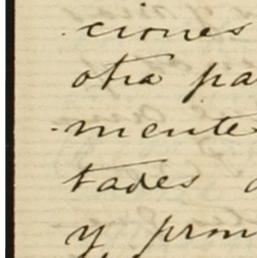 ciones
otra pa
mente
tades
y, pron